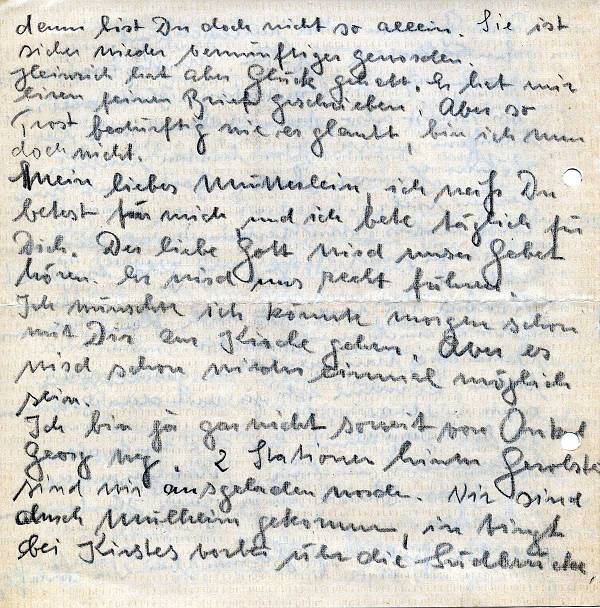 denn bist Du doch nicht so alleein. Sie ist
sicher wieder vernünftiger geworden.
Heinrich hat aber Glück gehabt. Er hat mir
einen feinen Brief geschrieben. Aber so
Trost bedürftig wie er glaubt, bin ich nun
doch nicht.
Mein liebes Mütterlein, ich weiß Du
betest für mich und ich bete täglich für
Dich. Der liebe Gott wird unser Gebet
hören. Er wird uns recht führen.
Ich wünschte ich könnte morgen schon
mit Dir zur Kirche gehen. Aber es
wird schon wieder einmal möglich
sein.
Ich bin ja gar nicht soweit von Onkel
Georg weg. 2 Stationen hinter Gerolst
sind wir ausgeladen worden. Wir sind
durch Mülheim gekommen, in
bei Kirstes vorbei über die Südbrücke,